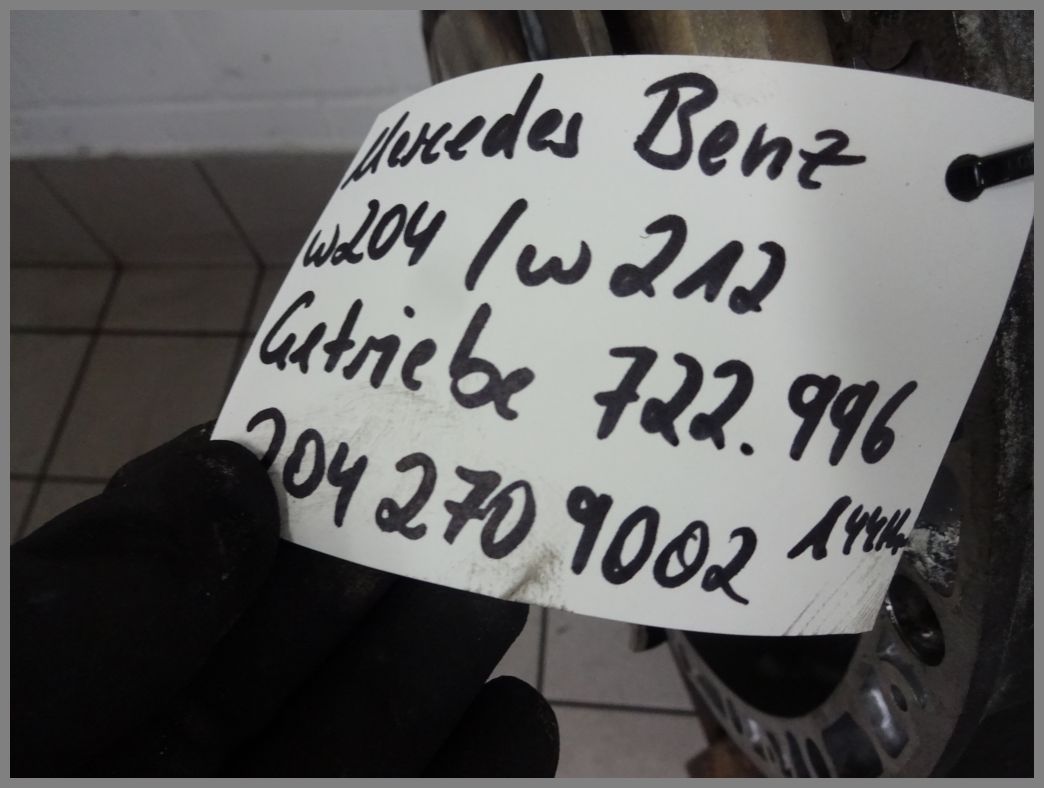 Mercedes Benz
w204 / w212
Getriebe 722.996
204 270 9002 144Km